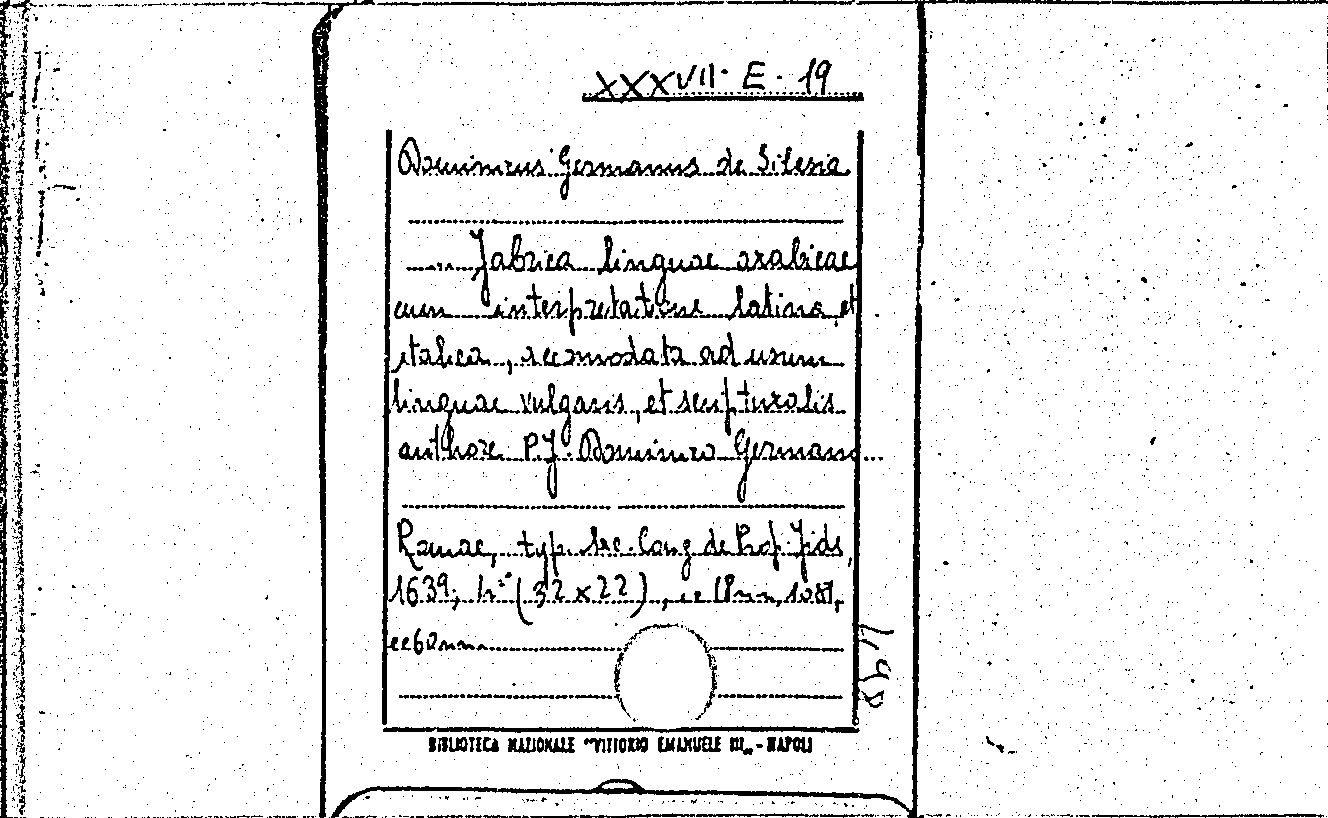 XXXVII. E. 19
Dominicus Germanus de Silesia.
Fabrica linguae arabicae
cum interpretatione latina, et
italica, accomodata ad usum
linguae vulgaris, et scripturalis
authore P.F. Dominico Germano...
Romae, typ. Sac. Cong. de Prop. Fide,
1639; in (32 x 22), cc
cc 60 nn.
BIBLIOTECA NAZIONALE "VITTORIO EMANUELE III„ - NAPOLI